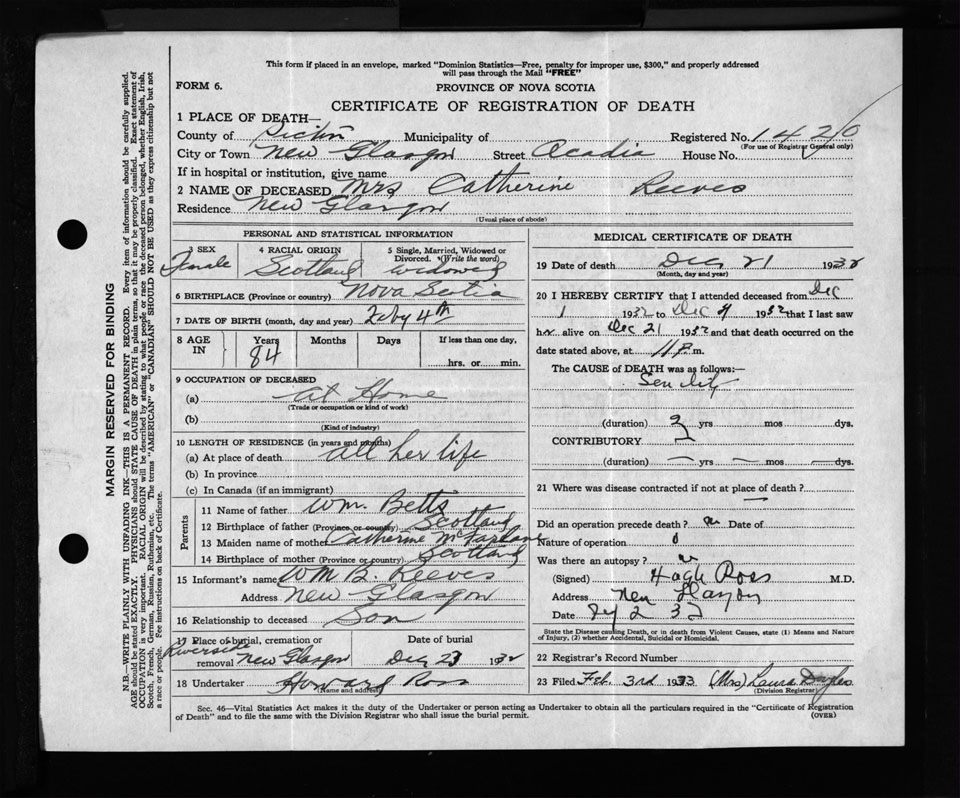 This form if placed in an envelope, marked "Dominion Statistics—Free, penalty for improper use, $300," and properly addressed
will pass through the Mail "FREE"
FORM 6.
PROVINCE OF NOVA SCOTIA
CERTIFICATE OF REGISTRATION OF DEATH
1 PLACE OF DEATH—
County of Pictou Municipality of Registered No. 1420
(For use of Registrar General only)
City or Town New Glasgow Street Acadia House No.
If in hospital or institution, give name
2 NAME OF DECEASED Mrs Catherine Reeves
Residence New Glasgow
(Usual place of abode)
PERSONAL AND STATISTICAL INFORMATION
3 SEX 4 RACIAL ORIGIN 5 Single, Married, Widowed or Divorced. (Write the word)
Female Scotland widowed
6 BIRTHPLACE (Province or country) Nova Scotia
7 DATE OF BIRTH (month, day and year) Feby 4th
8 AGE IN Years Months Days If less than one day,
84 hrs. or min.
9 OCCUPATION OF DECEASED
(a) at Home
(Trade or occupation or kind of work)
(b)
(Kind of industry)
10 LENGTH OF RESIDENCE (in years and months)
(a) At place of death all her life
(b) In province
(c) In Canada (if an immigrant)
Parents
11 Name of father Wm. Betts
12 Birthplace of father (Province or country) Scotland
13 Maiden name of mother Catherine McFarlane
14 Birthplace of mother (Province or country) Scotland
15 Informant's name WM B. Reeves
Address New Glasgow
16 Relationship to deceased Son
17 Place of burial, cremation or Date of burial
Riverside
removal New Glasgow Dec 23 1932
18 Undertaker Howard Ross
(Name and address)
MEDICAL CERTIFICATE OF DEATH
19 Date of death Dec 21 1932
(Month, day and year)
20 I HEREBY CERTIFY that I attended deceased from Dec
1 1932 to Dec 1932 that I last saw
h alive on Dec 21 1932 and that death occurred on
date stated above, at 11 P. m.
The CAUSE of DEATH was as follows:—
Senility
(duration) yrs mos dys.
CONTRIBUTORY
(duration) — yrs — mos — dys.
21 Where was disease contracted if not at place of death? —
Did an operation precede death? Date of
Nature of operation
Was there an autopsy?
(Signed) Hugh Ross M.D.
Address New Glasgow
Date
State the Disease causing Death, or in death from Violent Causes, state (1) Means and Nature
of Injury, (2) whether Accidental, Suicidal or Homicidal.
22 Registrar's Record Number
23 Filed Feb. 3rd 1933 (Mrs) Laura
(Division Registrar)
Sec. 46—Vital Statistics Act makes it the duty of the Undertaker or person acting as Undertaker to obtain all the particulars required in the "Certificate of Registration
of Death" and to file the same with the Division Registrar who shall issue the burial permit.
(OVER)
MARGIN RESERVED FOR BINDING
N.B.—WRITE PLAINLY WITH UNFADING INK—THIS IS A PERMANENT RECORD. Every item of information should be carefully supplied.
AGE should be stated EXACTLY. PHYSICIANS should STATE CAUSE OF DEATH in plain terms, so that it may be properly classified. Exact statement of
OCCUPATION is very important. RACIAL ORIGIN will be described by stating to what people or race the deceased person belonged, whether English, Irish,
Scotch, French, German, Russian, Ruthenian, etc. The terms "AMERICAN" or "CANADIAN" SHOULD NOT BE USED as they express citizenship but not
a race or people. Fee instructions on back of Certificate.